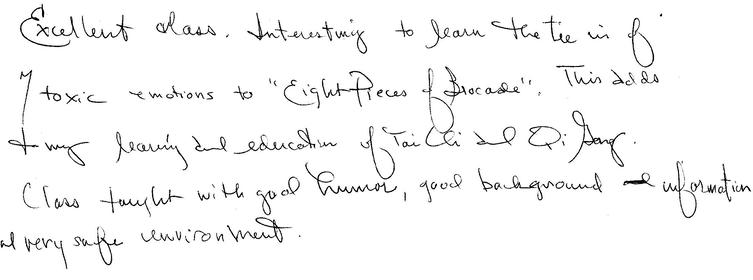 Excellent class. Interesting to learn the tie in of
7 toxic emotions to "Eight Pieces of Brocade". This adds
to my learning and education of Tai Chi and Qi Gong.
Class taught with good humor, good background and information
and very safe environment.